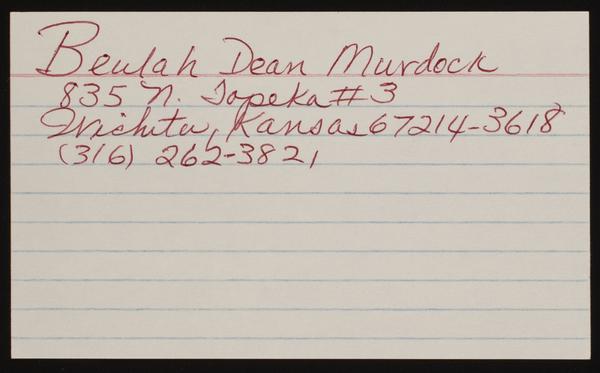 Beulah Dean Murdock
835 N. Topeka #3
Wichita, Kansas 67214-3618
(316) 262-3821